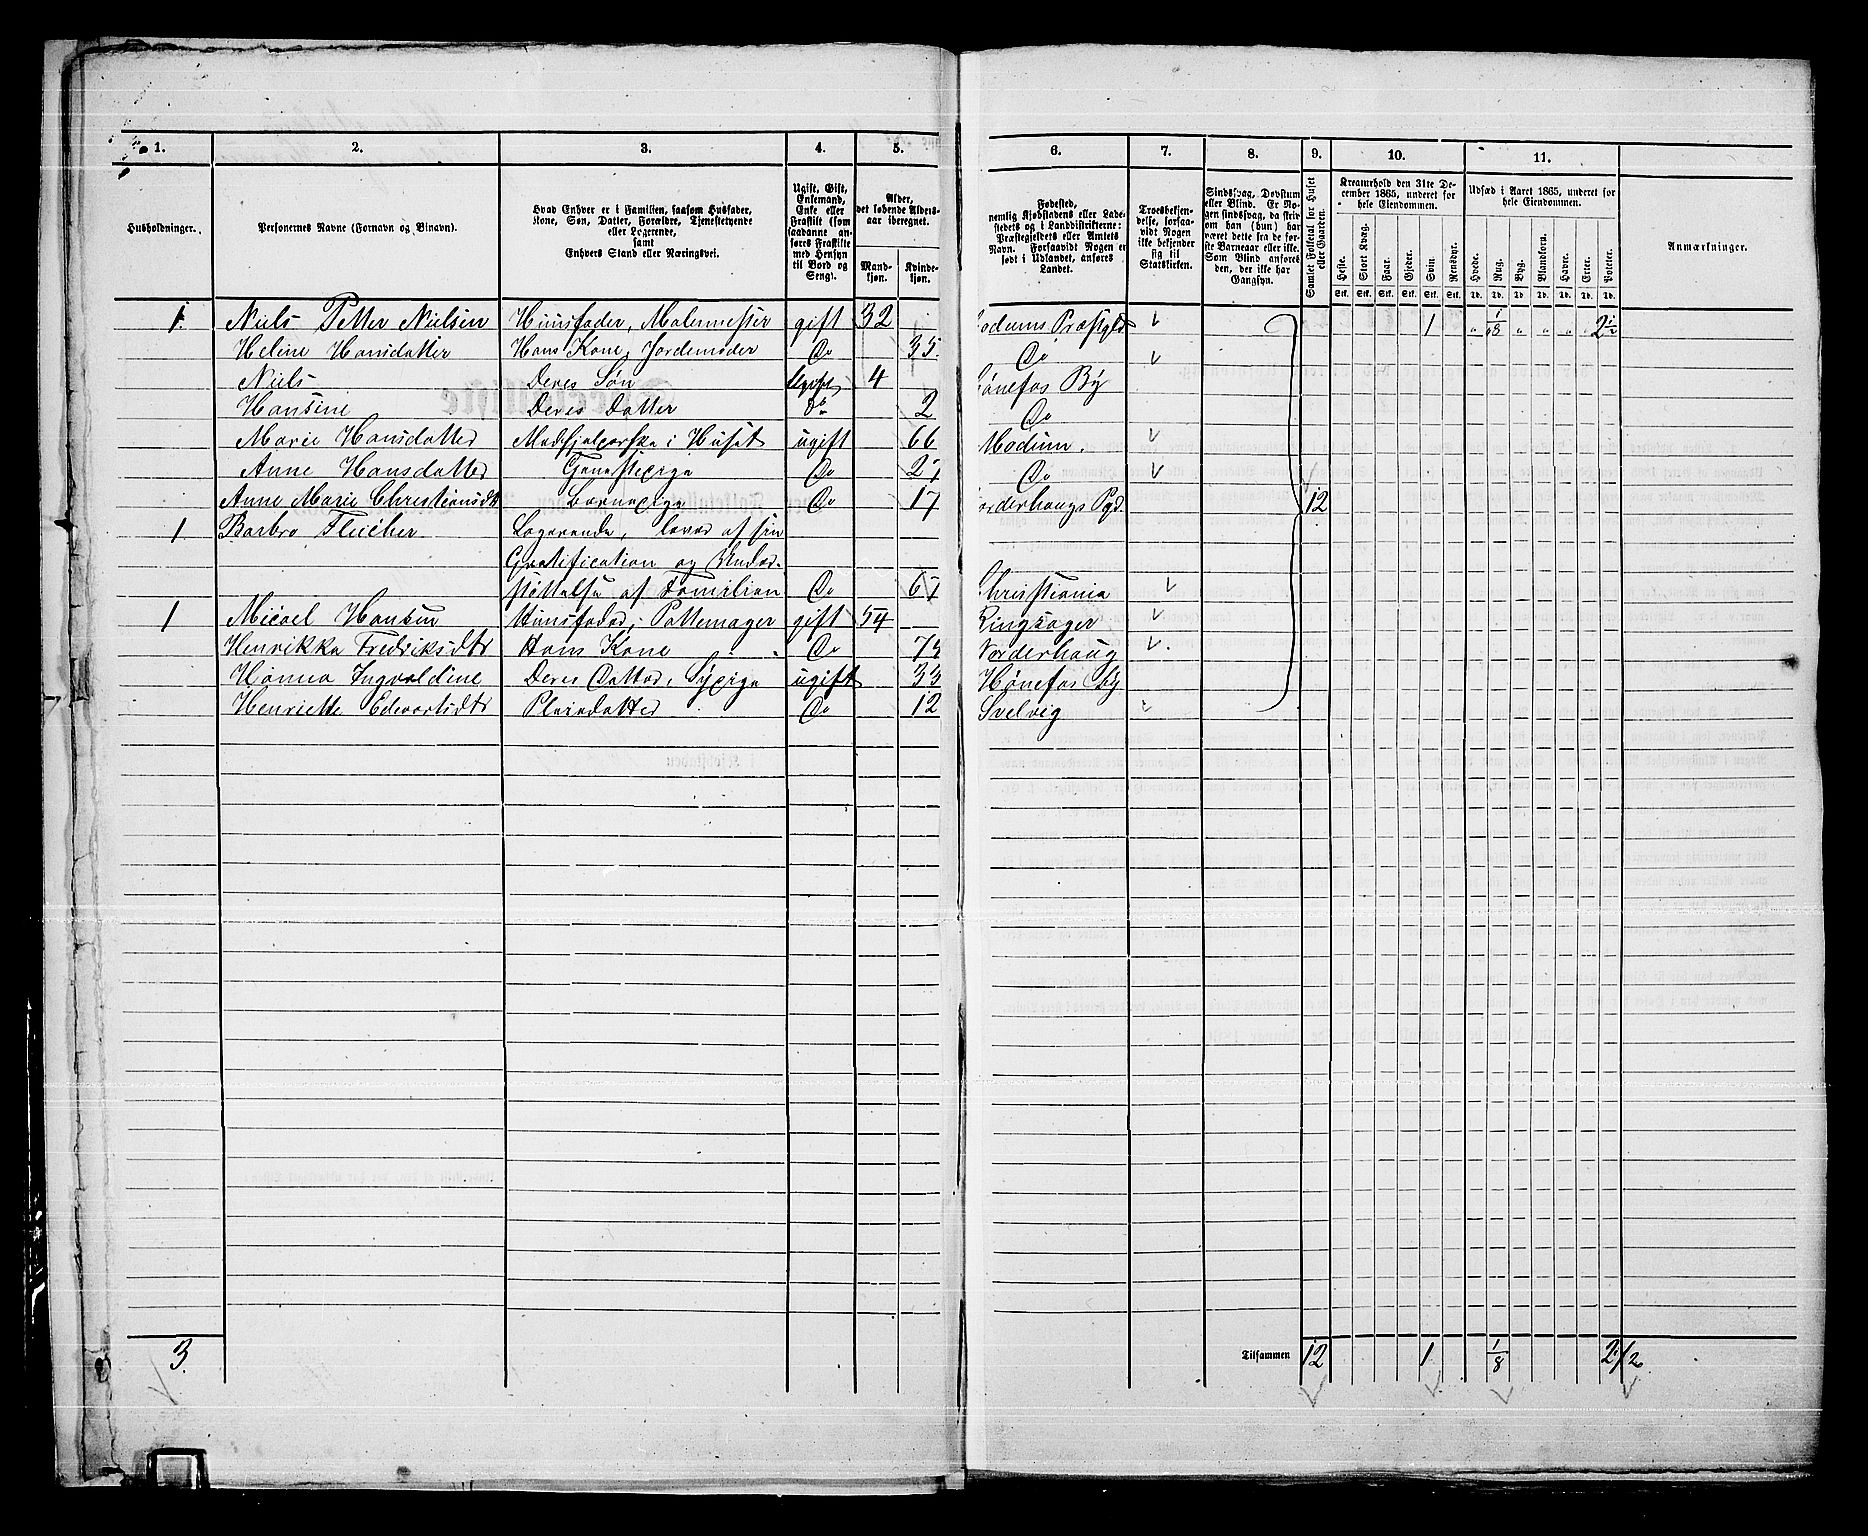 1. 2. 3. 4. 5. 6. 7. 8. 9. 10. 11.
Husholdninger.
Personernes Navne (Fornavn og Binavn).
Hvad Enhver er i Familien, saasom Husfader,
Kone, Søn, Datter, Forældre, Tjenestetyende
eller Logerende,
samt
Enhvers Stand eller Næringsvei.
Ugift, Gift,
Enkemand,
Enke eller
Fraskilt (som
saadanne an-
føres Fraskilte
med Hensyn
til Bord og
Seng).
Alder,
det løbende Alders-
aar iberegnet.
Mand-
kjøn.
Kvinde-
kjøn.
Fødested,
nemlig Kjøbstadens eller Lade-
stedets og i Landdistrikterne:
Præstegjeldets eller Amtets
Navn. Forsaavidt Nogen er
født i Udlandet, anføres
Landet.
Troesbekjen-
delse, forsaa-
vidt Nogen
ikke bekjender
sig til
Statskirken.
Sindssvag, Døvstum
eller Blind. Er No-
gen sindssvag, da skriv
om han (hun) har
været dette fra de før-
ste Barneaar eller ikke.
Som Blind anføres
den, der ikke har
Gangsyn.
Samlet Folketal for Huset
eller Gaarden.
Kreaturhold den 31te De-
cember 1865, underet for
hele Eiendommen.
Heste. Stort Kvæg. Faar. Gjeder. Svin. Rensdyr.
Stk. Stk. Stk. Stk. Stk. Stk.
Udsæd i Aaret 1865, underet for
hele Eiendommen.
Hvede. Rug. Byg. Blandkorn. Havre. Erter. Poteter.
Td. Td. Td. Td. Td. Td. Td.
Anmærkninger.
1 Niels Petter Nielsen Huusfader, Malermester gift 32 Modums Præstgld 1 1/8 2 1/2
Heline Hansdatter Hans Kone, Jordemoder Do 35 Do
Niels Deres Søn Ugift 4 Hønefos By
Hansine Deres Datter Do 2 Do
Marie Hansdatter Medhjelperske i Huset ugift 66 Modum.
Anne Hansdatter Tjenestepige Do 27 Do
Anne Marie Christiansdtr Barnepige Do 17 Norderhougs Pgd. 12
1 Barbro Fleischer Logerende, lever af sin
Gratification og Under-
støttelse af Familien Do 67 Christiania
1 Micael Hansen Huusfader, Pottemager gift 54 Ringsager
Henrikka Fredriksdtr Hans Kone Do 73 Norderhoug
Hanna Ingvaldine Deres Datter, Sypige ugift 33 Hønefos By
Henriette Edvartsdtr Pleiedatter Do 12 Svelvig
3 Tilsammen 12 1 1/8 2 1/2